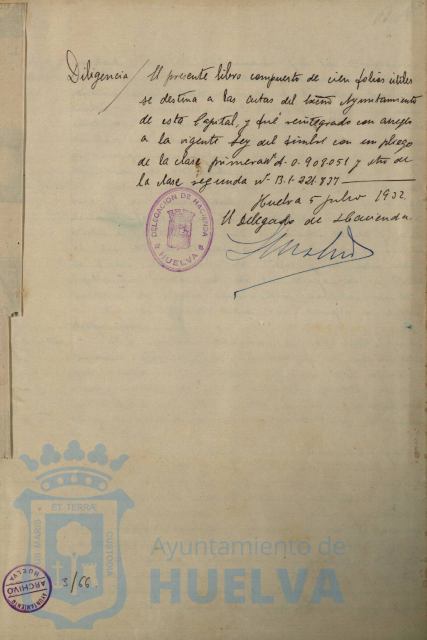 Diligencia / El presente libro compuesto de cien folios útiles
se destina a las actas del Excmo Ayuntamiento
de esta Capital, y fué reintegrado con arreglo
a la vigente Ley del Timbre con un pliego
de la clase primera nº 0.908051 y otro de
la clase segunda nº B.1.221.837
Huelva 5 julio 1932
El Delegado de Hacienda
DELEGACION DE HACIENDA
HUELVA
ET TERRAE
MARIS
CUSTODIA
Ayuntamiento de
HUELVA
AYUNTAMIENTO
HUELVA
ARCHIVO
3/66.